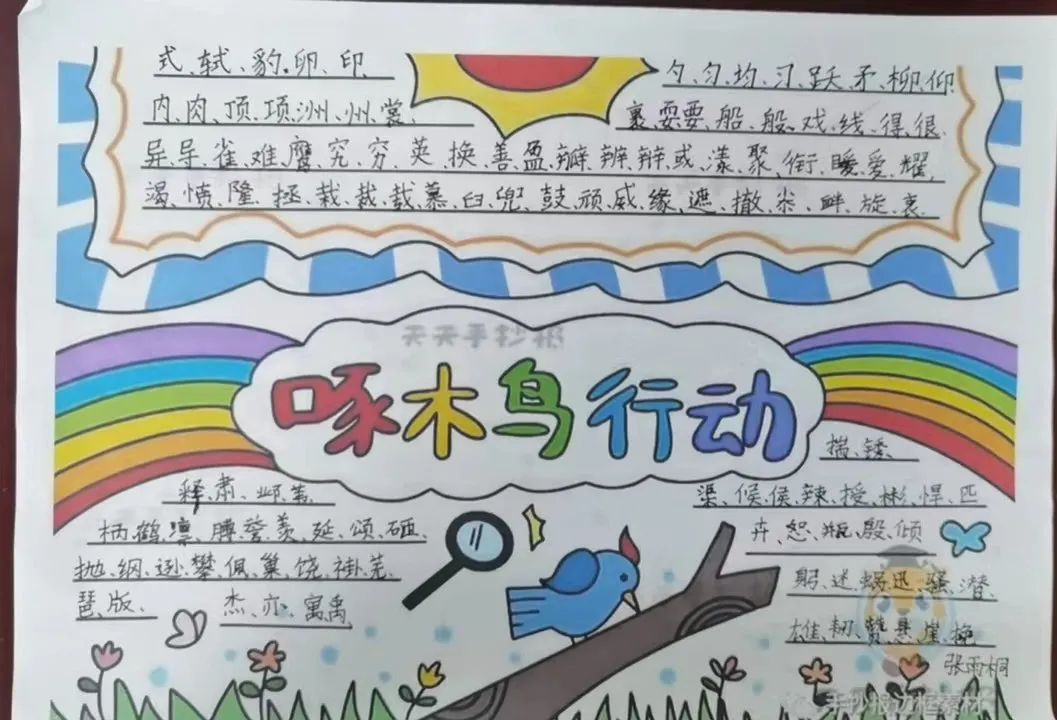 式、轼、豹、卵、印
勺、匀、均、习、跃、矛、柳、仰
内、肉、顶、项、洲、州、裳、
裹、耍、要、船、般、戏、线、得、很、
异、导、雀、难、鹰、究、穷、英、换、善、盈、瓣、辨、辩、或、漾、聚、衔、暖、爱、耀、
竭、愤、隆、拯、栽、裁、载、慕、臼、兜、鼓、顽、威、缘、遮、撤、畔、旋、衰、
天天手抄报
啄木鸟行动
揣、矮、
释、肃、邺、苇、
渠、候、侯、辣、授、彬、悍、匹
柄、鹤、凛、腾、誉、羡、延、颂、砸、
卉、恕、瓶、殷、倾
抛、纲、逊、攀、佩、巢、饶、褂、芜、
躬、迷、蜗、迅、骚、潜、
琶、版、 杰、亦、寓、禹、
雄、韧、赞、悬、崖、挽、
张雨桐
手抄报边框素材